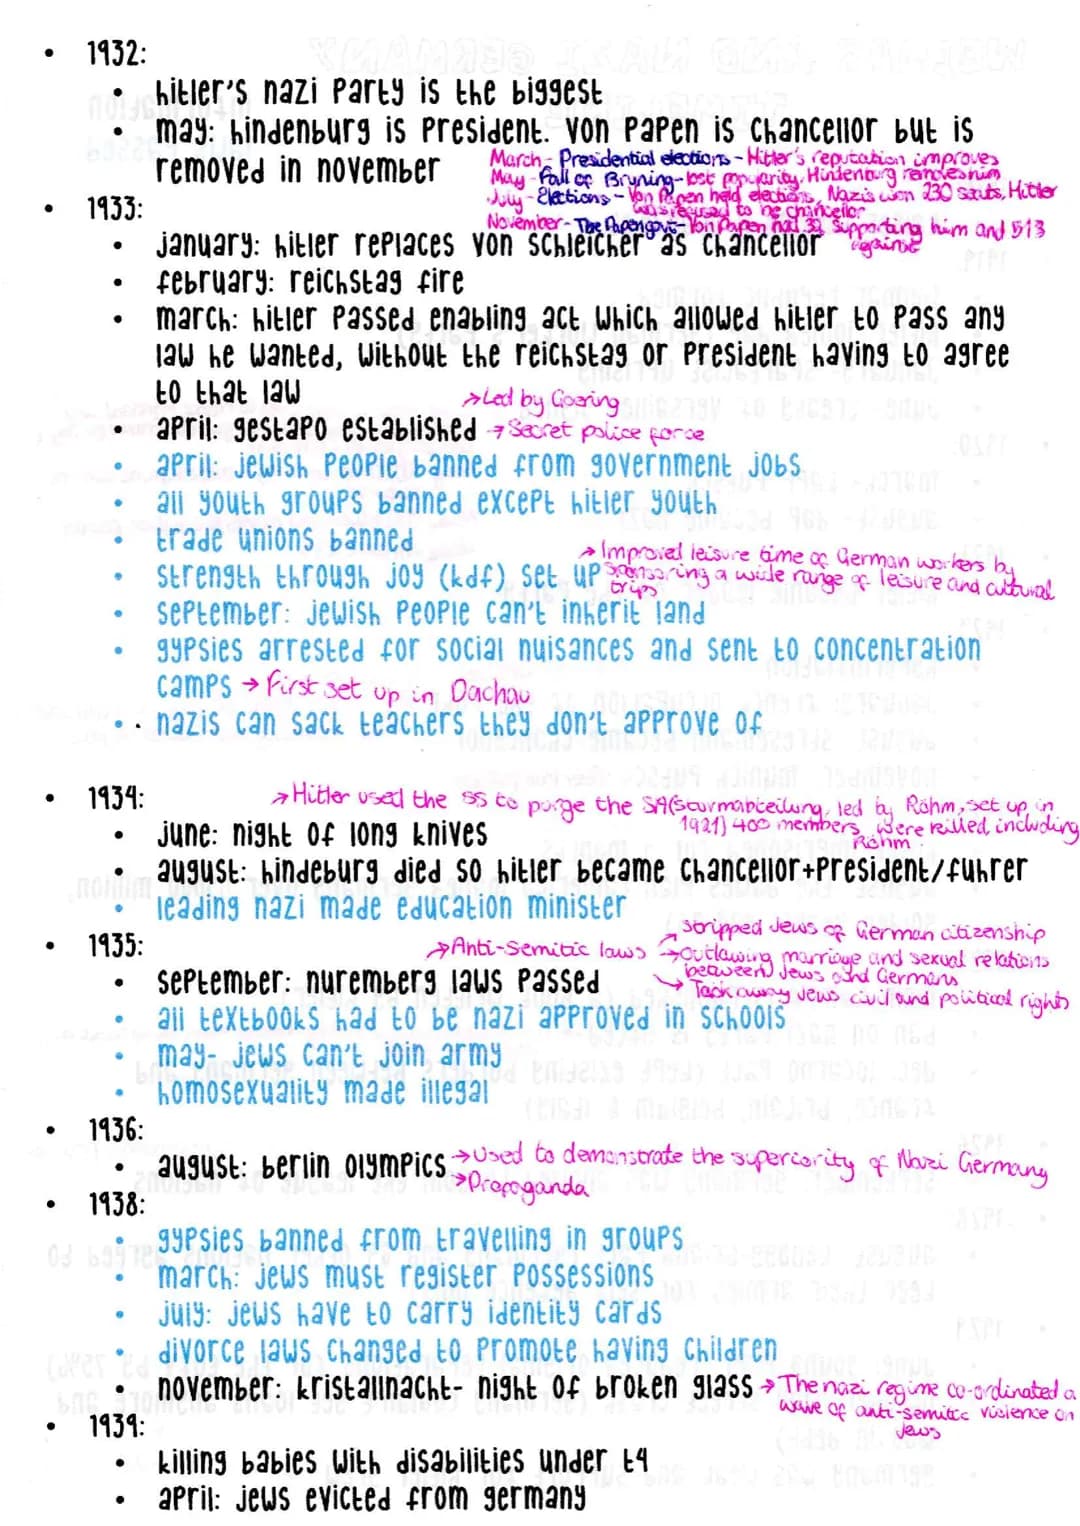 • 1932:
• hitler's nazi party is the biggest
• may: hindenburg is president. von papen is chancellor but is
removed in november
March - Presidential elections - Hitler's reputation improves
May - Fall of Bruning - lost popularity, Hindenburg removes him
July - Elections - Von Papen held elections, Nazis won 230 seats, Hitler
was refused to be chancellor
November - The Papen govt - Von Papen had 32 supporting him and 513
against
• 1933:
• january: hitler replaces von schleicher as chancellor
• february: reichstag fire
• march: hitler passed enabling act which allowed hitler to pass any
law he wanted, without the reichstag or president having to agree
to that law
→ Led by Goering
• april: gestapo established → Secret police force
• april: jewish people banned from government jobs
• all youth groups banned except hitler youth
• trade unions banned
• strength through joy (kdf) set up → Improved leisure time of German workers by
sponsoring a wide range of leisure and cultural
trips
• september: jewish people can't inherit land
• gypsies arrested for social nuisances and sent to concentration
camps → First set up in Dachau
• nazis can sack teachers they don't approve of
• 1934:
→ Hitler used the SS to purge the SA (Sturmabteilung, led by Röhm, set up in
1921) 400 members were killed, including
Röhm.
• june: night of long knives
• august: hindeburg died so hitler became chancellor+president/fuhrer
• leading nazi made education minister
• 1935:
• september: nuremberg laws passed
→ Anti-Semitic laws
→ stripped Jews of German citizenship
→ Outlawing marriage and sexual relations
between Jews and Germans
→ Took away Jews civil and political rights
• all textbooks had to be nazi approved in schools
• may- jews can't join army
• homosexuality made illegal
• 1936:
• august: berlin olympics → Used to demonstrate the superiority of Nazi Germany
→ Propoganda
• 1938:
• gypsies banned from travelling in groups
• march: jews must register possessions
• july: jews have to carry identity cards
• divorce laws changed to promote having children
• november: kristallnacht- night of broken glass → The nazi regime co-ordinated a
wave of anti-semitic violence on
Jews
• 1939:
• killing babies with disabilities under t4
• april: jews evicted from germany